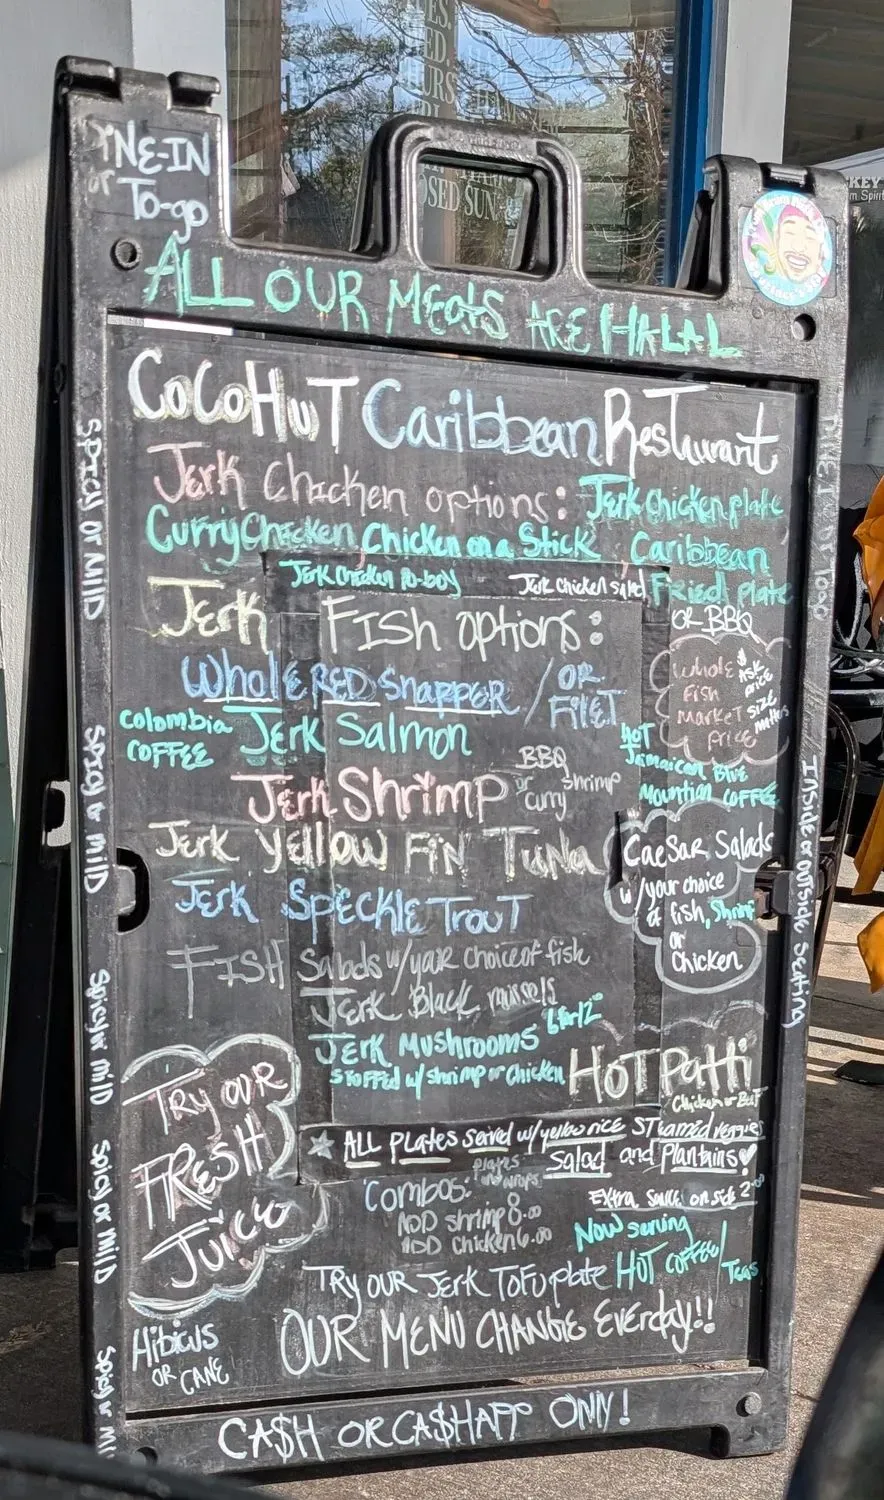 NE-IN
or To-go
ALL OUR MEATS ARE HALAL
COCOHUT Caribbean Restaurant
Jerk Chicken options: Jerk Chicken plate
Curry Chicken, Chicken on a Stick, Caribbean
Jerk Chicken Po-boy Jerk Chicken salad Fried plate
OR BBQ
Jerk Fish options:
Whole RED Snapper / OR FilET
Whole Fish Market price
$ ASK price size matters
Colombia COFFEE
Jerk Salmon
HOT Jamaican Blue Mountian COFFE
Jerk Shrimp BBQ or curry shrimp
Jerk Yellow Fin Tuna
Caesar Salads w/your choice of fish, Shrimp or Chicken
Jerk SpeckleTrouT
FISH Salads w/your choice of fish
Jerk Black mussels
Jerk Mushrooms 6 for 12
Stoffed w/shrimp or chicken
HOT Patti
Chicken or Beef
TRY OUR FRESH JuicE
Hibicus OR CANE
ALL plates served w/yellow rice STeamed veggies
Salad and Plantains
Combos: plates and wraps
ADD shrimp 8.00
ADD Chicken 6.00
Extra Sauce on side 2.00
Now serving HOT COFFEE/ Teas
TRY OUR Jerk Tofu plate
OUR MENU CHANGE Everday!!
CA$H OR CA$HAPP ONLY!
SPICY or MIlD
SPICY or MilD
Spicy or MilD
Spicy or MilD
Spicy or
Inside or outside seatting
OSED SUN